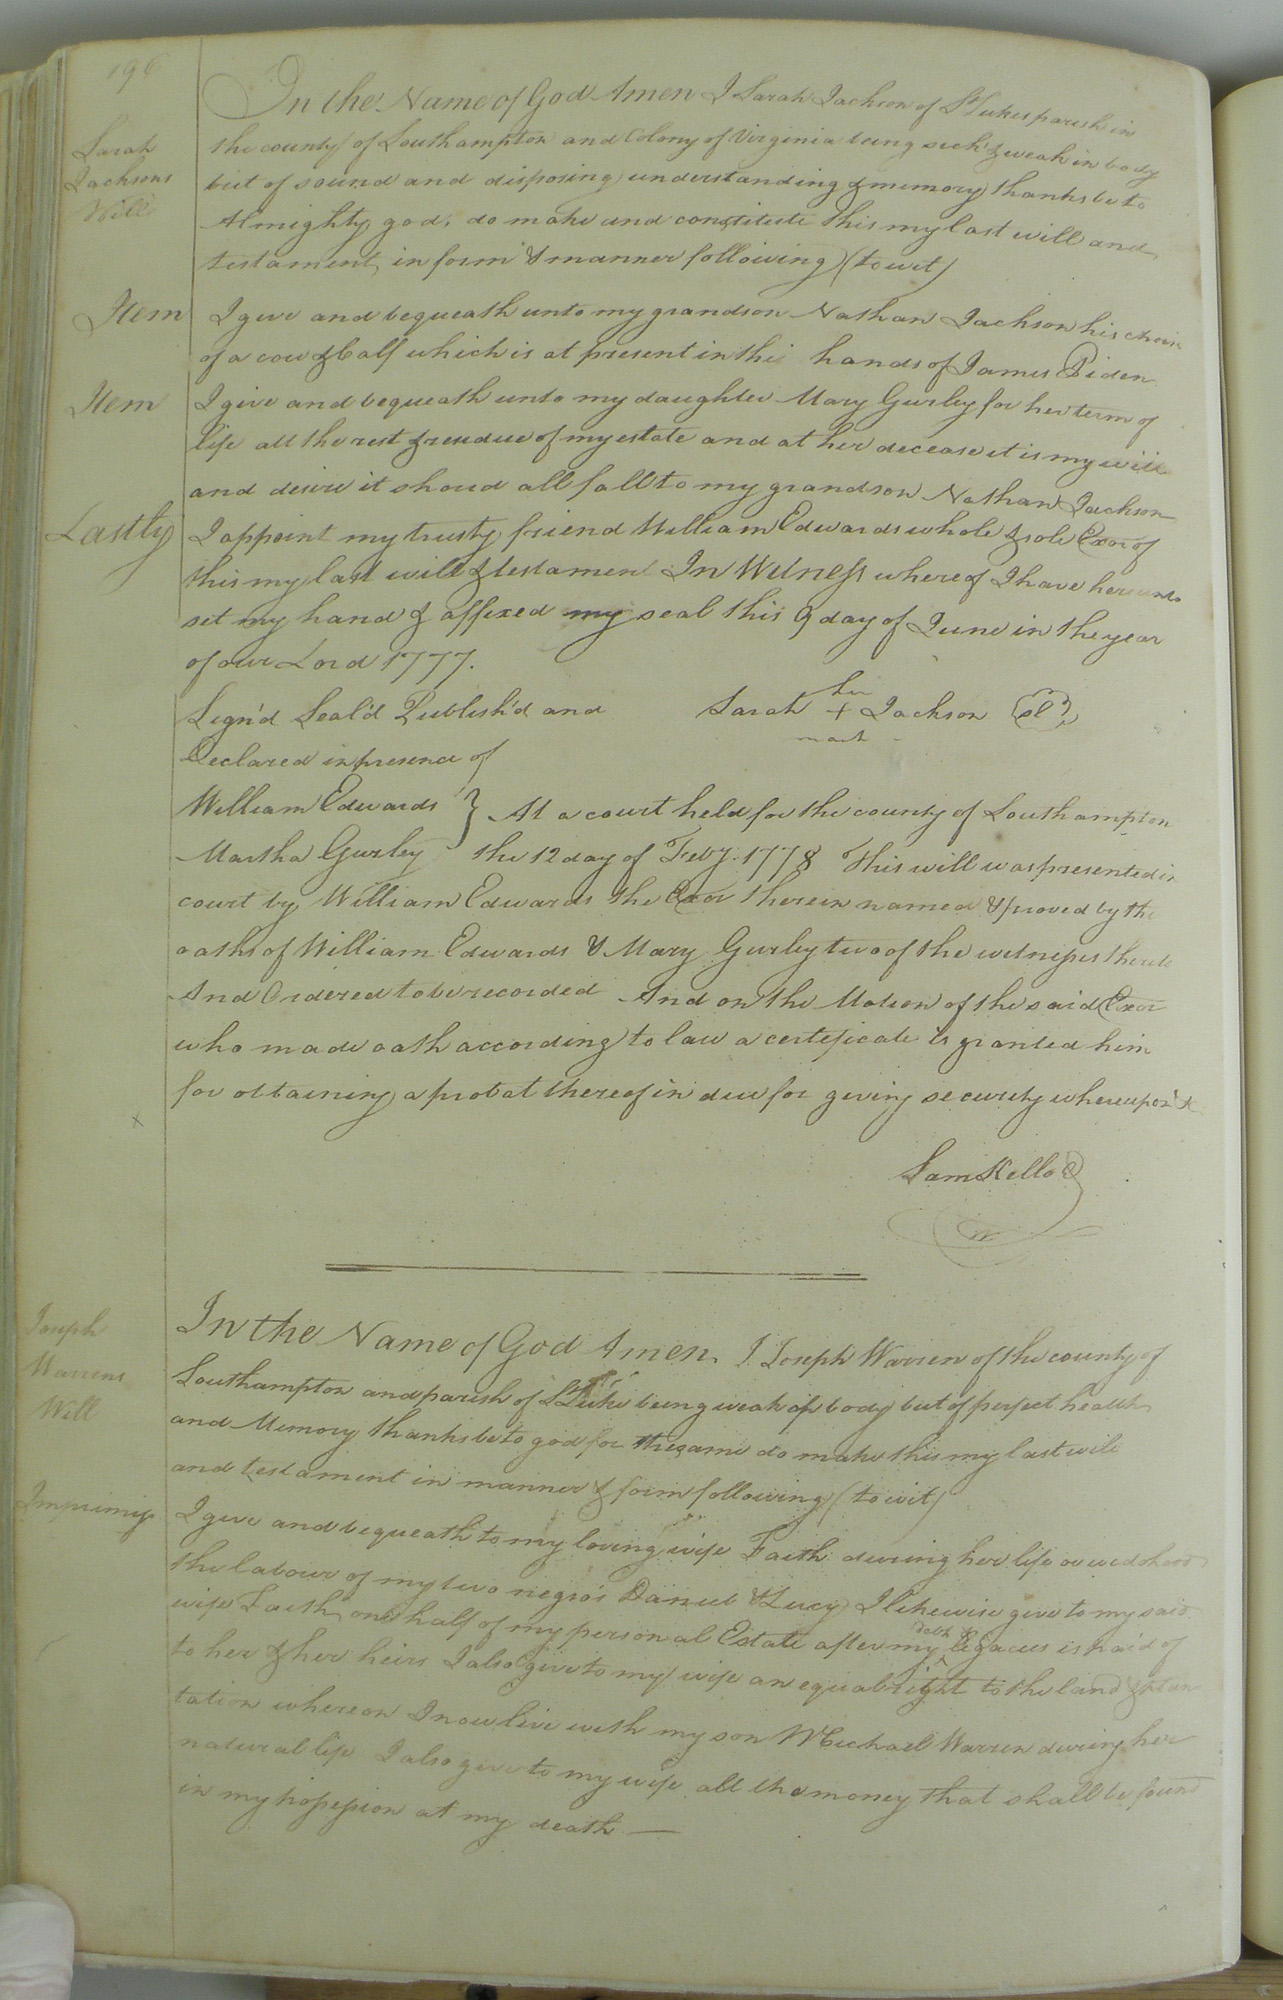 196
Sarah
Jacksons
Will
In the Name of God Amen I Sarah Jackson of St Lukes parish in
the county of Southampton and Colony of Virginia being sick & weak in body
but of sound and disposing understanding & memory thanks be to
Almighty god, do make and constitute this my last will and
testament, in form & manner following (to wit)
Item I give and bequeath unto my grandson Nathan Jackson his choice
of a cow & Calf which is at present in the hands of James
Item I give and bequeath unto my daughter Mary Gurley for her term of
life all the rest & residue of my estate and at her decease it is my will
and desire it shoud all fall to my grandson Nathan Jackson
Lastly I appoint my trusty friend William Edwards whole & sole Exor of
this my last will & testament In Witness whereof I have hereunto
set my hand & affixed my seal this 9 day of June in the year
of our Lord 1777.
Sign'd Seal'd Publish'd and Sarah her + mark Jackson
Declared in presence of
William Edwards } At a court held for the county of Southampton
Martha Gurley the 12 day of Feby. 1778 This will was presented in
court by William Edwards the Exor therein named & proved by the
oaths of William Edwards & Mary Gurley two of the witnesses thereto
And Ordered to be recorded And on the Motion of the said Exor
who made oath according to law a certificate is granted him
for obtaining a probat thereof in due for giving security whereupon &c
x
Sam Kello
Joseph
Warrens
Will
In the Name of God Amen. I. Joseph Warren of the county of
Southampton and parish of St Luke being weak of body but of perfect health
and Memory thanks be to god for the same do make this my last will
and testament in manner & form following (to wit)
Imprimis I give and bequeath to my loving wife Faith during her life or widohood
the labour of my two negro's Daniel & Lucy I likewise give to my said
wife Faith one half of my personal Estate after my debts & legacies is paid of
to her & her heirs I also give to my wife an equal right to the land & plan
tation whereon I now live with my son Michael Warren during her
natural life I also give to my wife all the money that shall be found
in my possession at my death —